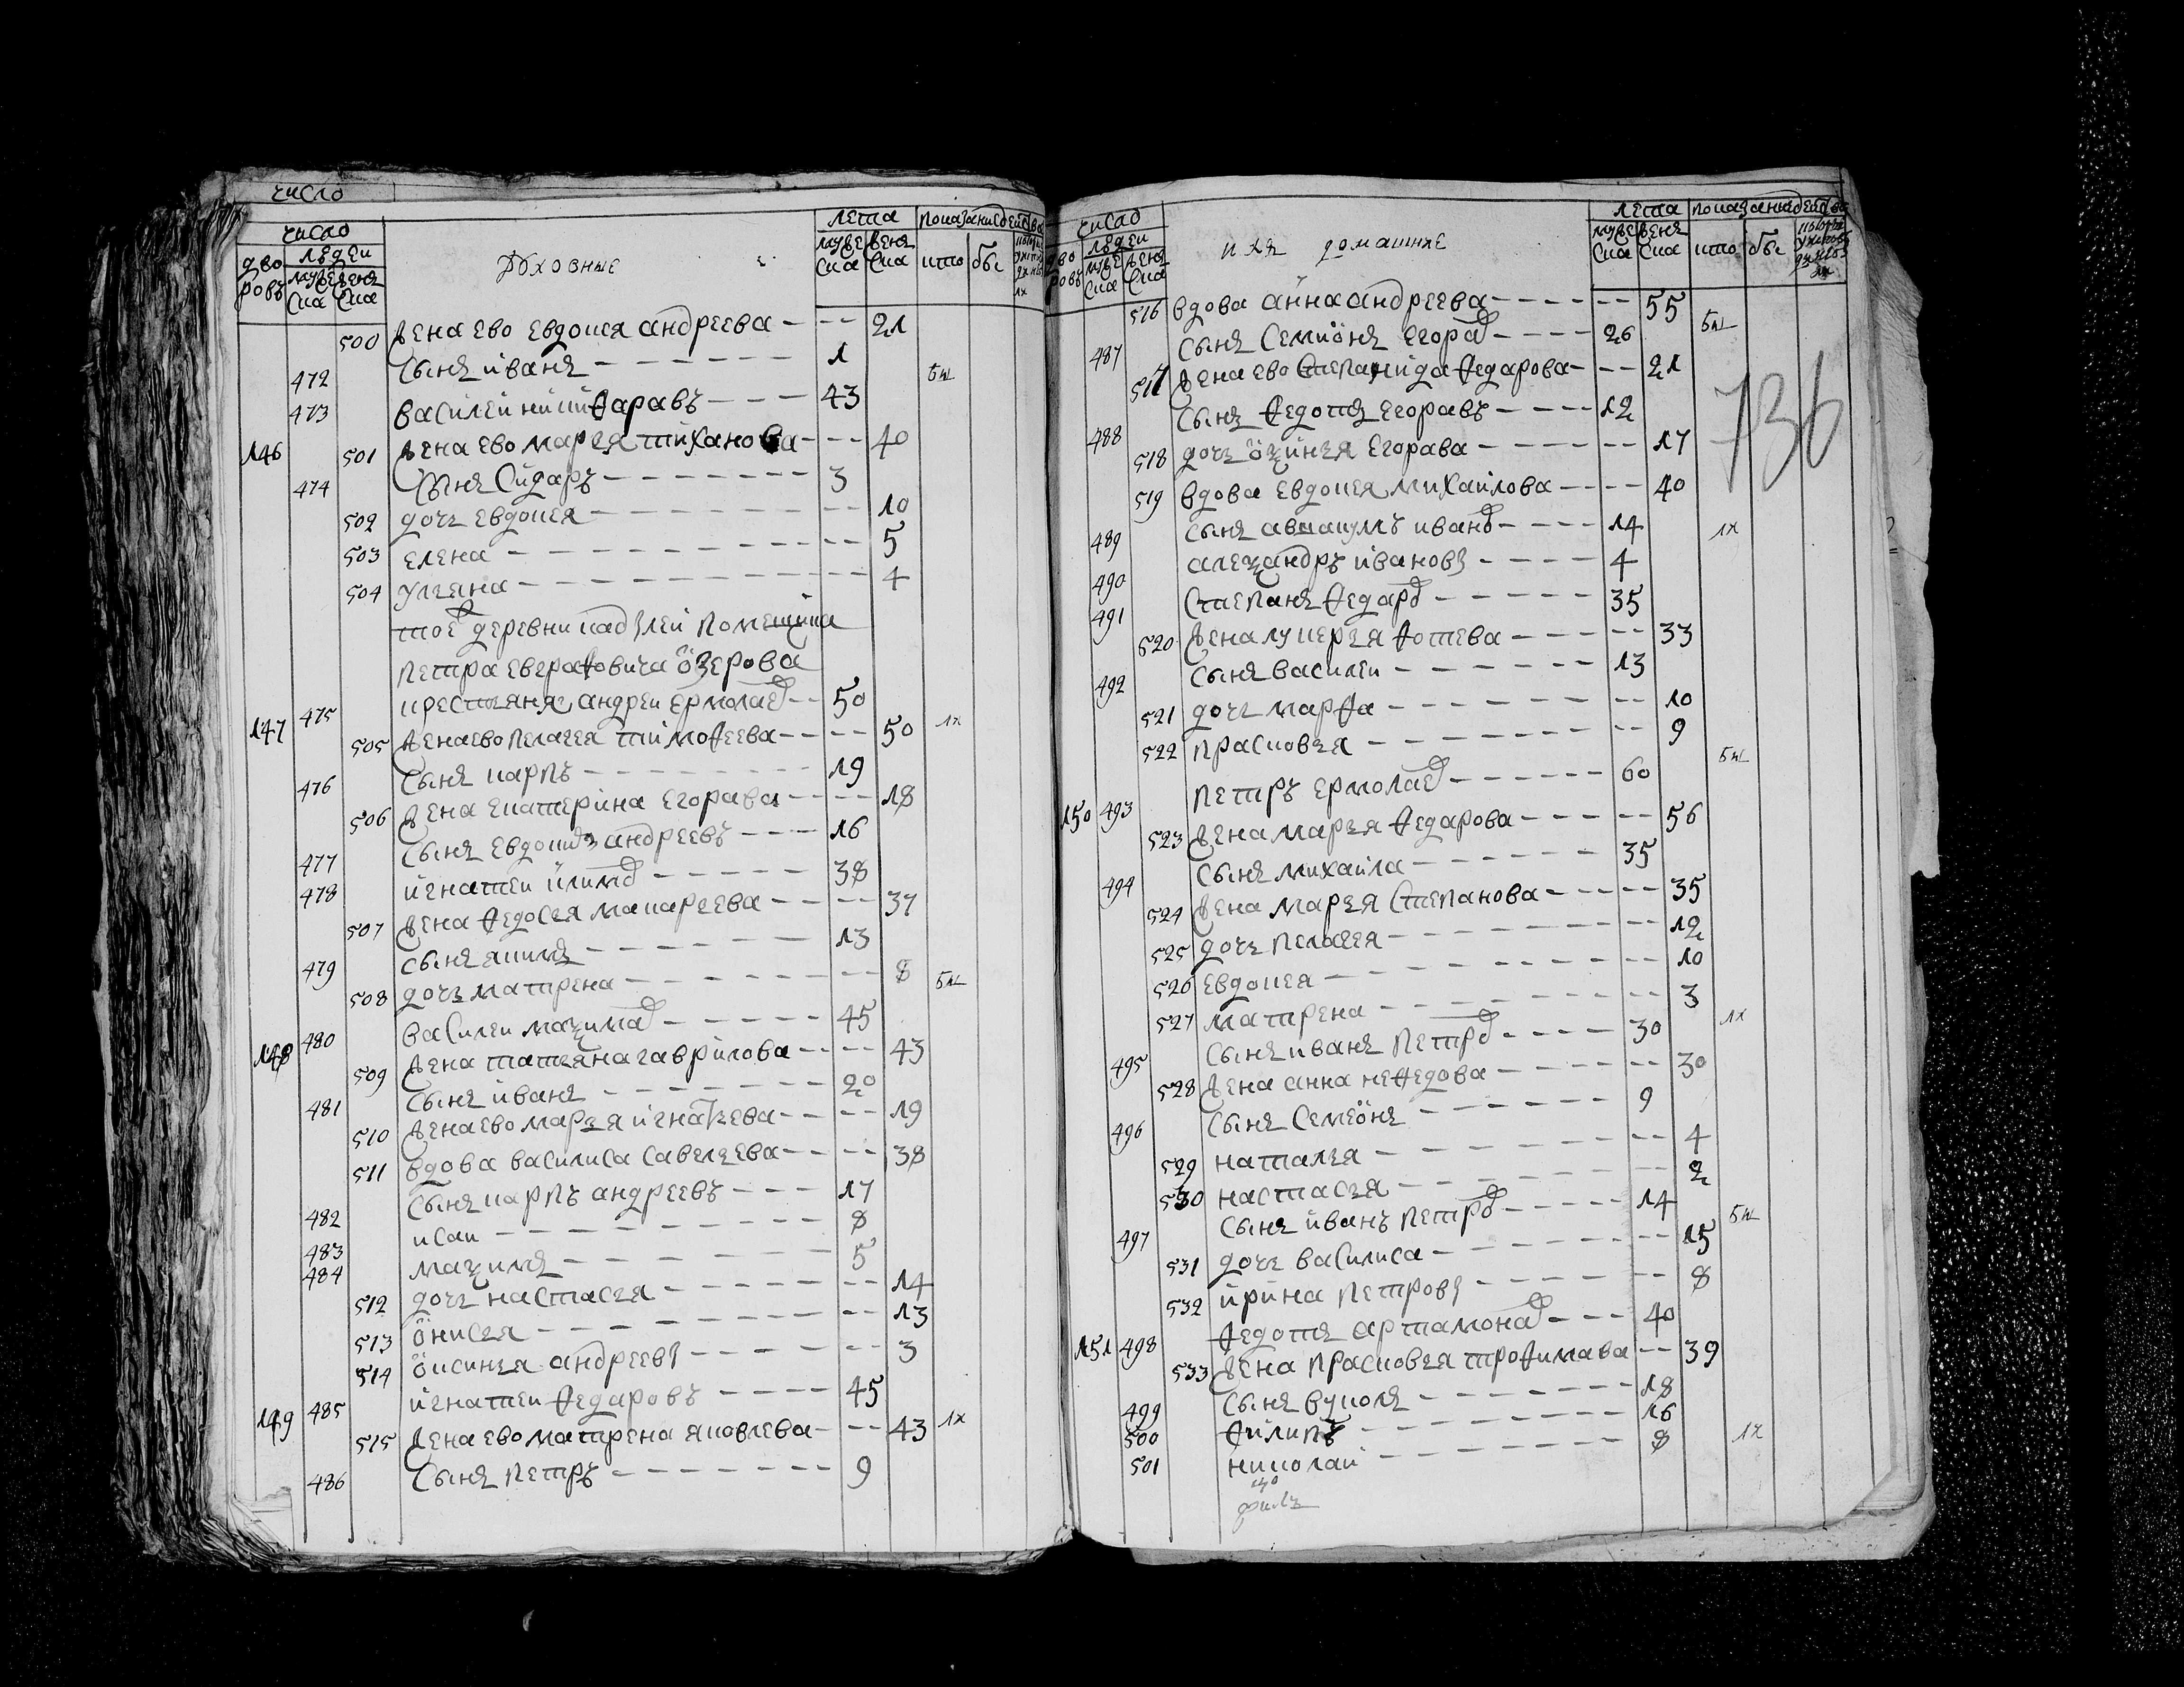 число
число
дво ровъ
людеи
мужеска
женска
Духовные
лета
мужеска
женска
показание действа
кто
бы
500 Жена ево Евдокея андреева - - - 21
472 Сынъ иванъ - - - 1
473 василеи никифаравъ - - - 43
146 501 Жена ево марья тиханова - - - 40
474 Сынъ Сидаръ - - - 3
502 дочь Евдокея - - - 10
503 елена - - - 5
504 Ульяна - - - 4
тое деревни
Петра евграфовича озерова
147 475 крестьянъ андреи ермолаев - - 50
505 Жена ево пелагея тимофеева - - - 50
476 Сынъ карпъ - - - 19
506 Жена екатерина Егорава - - - 18
477 Сынъ Евдоким андреевъ - - - 16
478 игнатеи - - - 38
507 Жена федосья макареева - - - 37
479 сынъ якимъ - - - 13
508 дочь матрена - - - 8
148 480 василеи макимов - - - 45
509 Жена татьяна гаврилова - - - 43
481 Сынъ иванъ - - - 20
510 Жена ево марья игнатьева - - - 19
511 вдова василиса савельева - - - 38
482 Сынъ карпъ андреевъ - - - 17
483 исаи - - - 8
484 макимъ - - - 5
512 дочь настасья - - - 14
513 онисья - - - 13
514 оксинья андреев - - - 3
149 485 игнатеи федаровъ - - - 45
515 Жена ево матрена яковлева - - - 43
486 Сынъ Петръ - - - 9
число
дво ровъ
людеи
мужеска
женска
ихъ домашние
лета
мужеска
женска
показание действа
кто
бы
516 вдова анна андреева - - - 55
487 сынъ Семионъ Егоров - - - 26
517 Жена ево степанида федарова - - - 21
488 Сынъ федотъ Егоравъ - - - 12
518 дочь оксинья Егорава - - - 17
519 вдова Евдокея михаилова - - - 40
489 Сынъ авакумъ иванов - - - 14
490 александръ ивановъ - - - 4
491 Степанъ федаров - - - 35
520 Жена лукерья фотева - - - 33
492 Сынъ василеи - - - 13
521 дочь марфа - - - 10
522 прасковья - - - 9
150 493 Петръ ермолаев - - - 60
523 Жена марья федарова - - - 56
494 Сынъ михаила - - - 35
524 Жена марья степанова - - - 35
525 дочь пелагея - - - 12
526 Евдокея - - - 10
527 матрена - - - 3
495 Сынъ иванъ Петров - - - 30
528 Жена анна нефедова - - - 30
496 Сынъ Семеонъ - - - 9
529 наталья - - - 4
530 настасья - - - 2
497 Сынъ иванъ Петров - - - 14
531 дочь василиса - - - 15
532 ирина петровъ - - - 8
151 498 федотъ артамонов - - - 40
533 Жена прасковья трофимава - - 39
499 Сынъ вуколъ - - - 18
500 филипъ - - - 16
501 николаи - - - 8
736